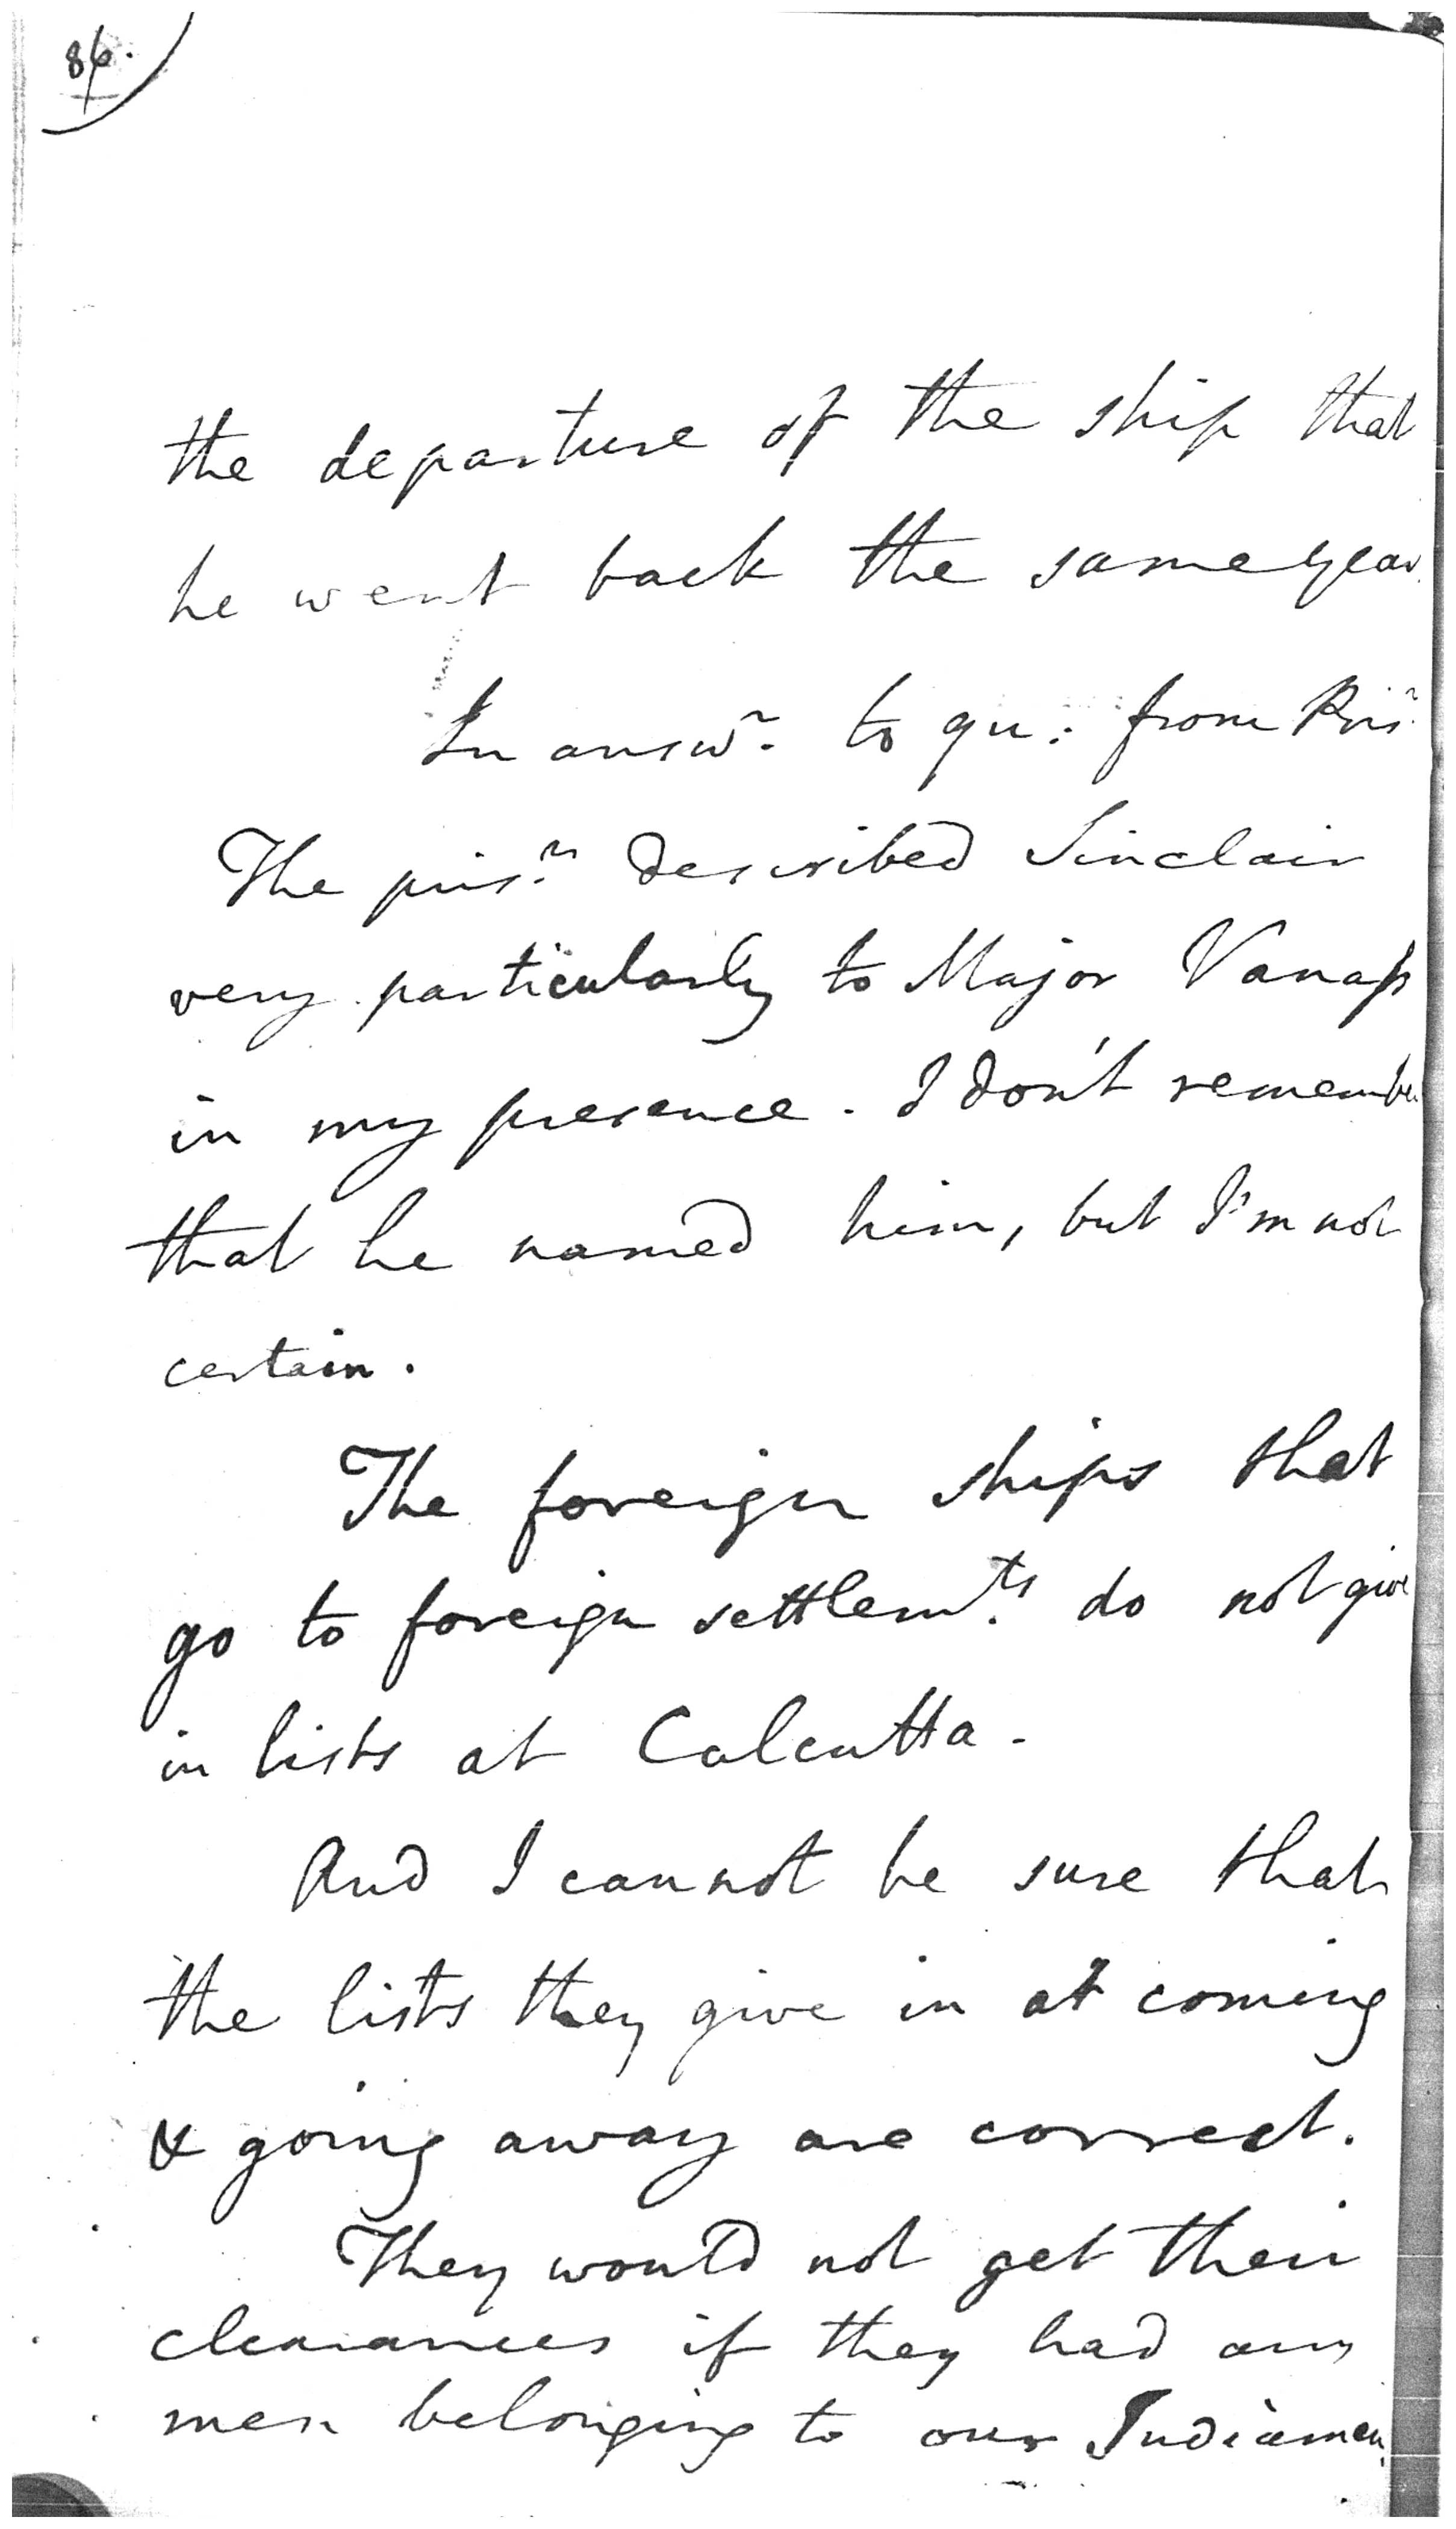 86.
the departure of the ship that
he went back the same year.
In answ.r to qu: from Pris.r
The pris.r described Sinclair
very particularly to Major Vanas
in my presence. I don't remember
that he named him, but I'm not
certain.
The foreign ships that
go to foreign settlem.ts do not give
in lists at Calcutta.
And I cannot be sure that
the lists they give in at coming
& going away are correct.
They would not get their
clearances if they had any
men belonging to our Indiamen.